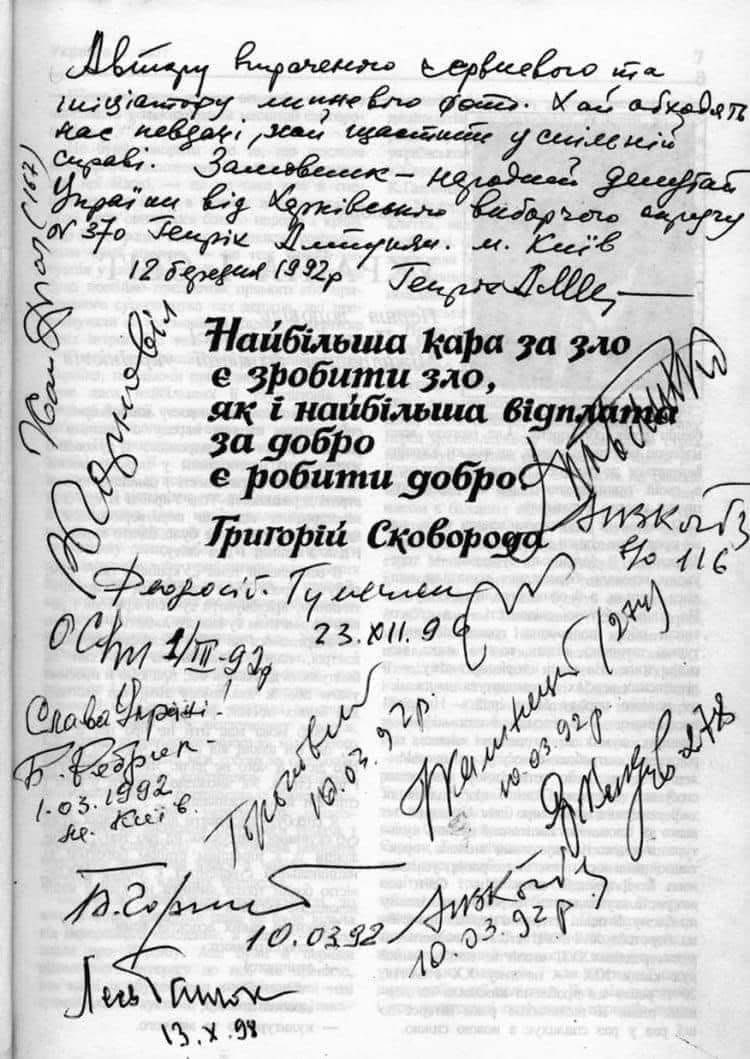 Автору втраченого червневого та
ініціатору липневого фото. Хай обходять
нас невдачі, хай щастить у спільній
справі. Замовник – народний депутат
України від Харківського виборчого округу
№ 370 Генріх Алтунян. м. Київ
12 березня 1992р Генріх
(167)
Найбільша кара за зло
є зробити зло,
як і найбільша відплата
за добро
є робити добро
Григорій Сковорода
в/о 116
Феодосій Гуменюк
23.XII.96
1/III-92р
(274)
Слава Україні!
Б. Ребрик
1.03.1992
м. Київ.
10.03.92р
10.03.92р
278
В. Горинь
10.03.92
10.03.92р
Лесь Танюк
13.X.98